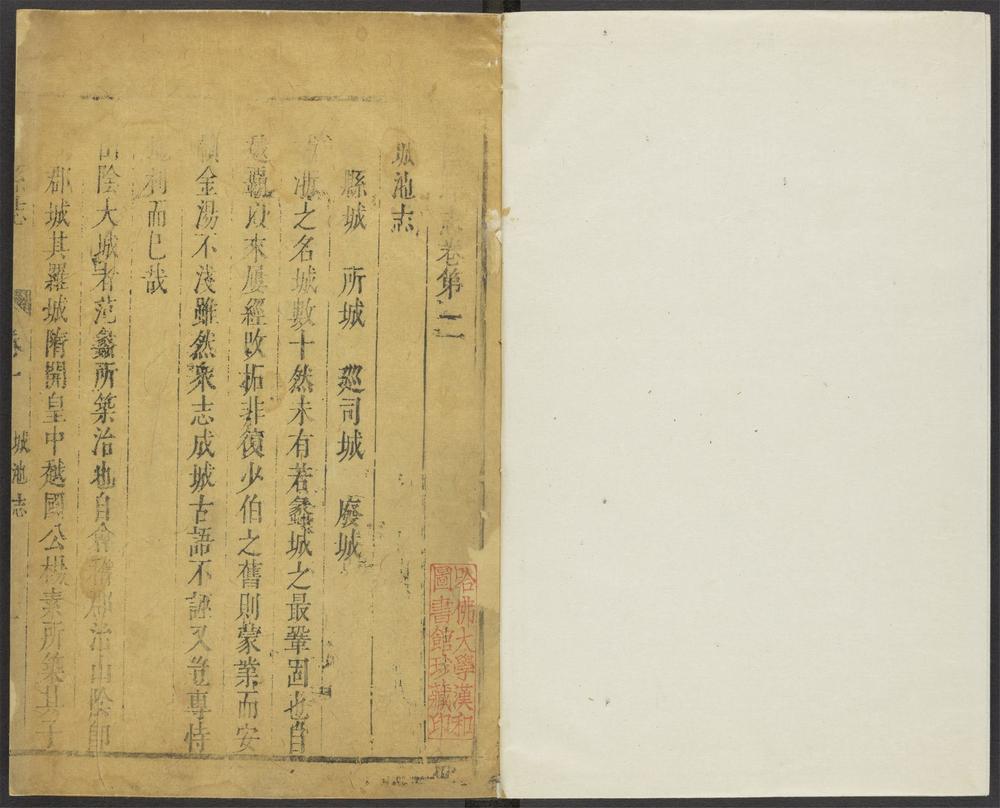 志卷第二
城池志
縣城 所城 廵司城 廢城
浙之名城數十然未有若蠡城之最鞏固也自
越覇以來屢經改拓非復少伯之舊則蒙業而安
金湯不淺雖然衆志成城古語不誣又豈專恃
地利而已哉
山陰大城者范蠡所築治也自會稽郡治山陰卽
郡城其羅城隋開皇中越國公楊素所築其子
縣志
城池志
哈佛大學漢和
圖書館珍藏印